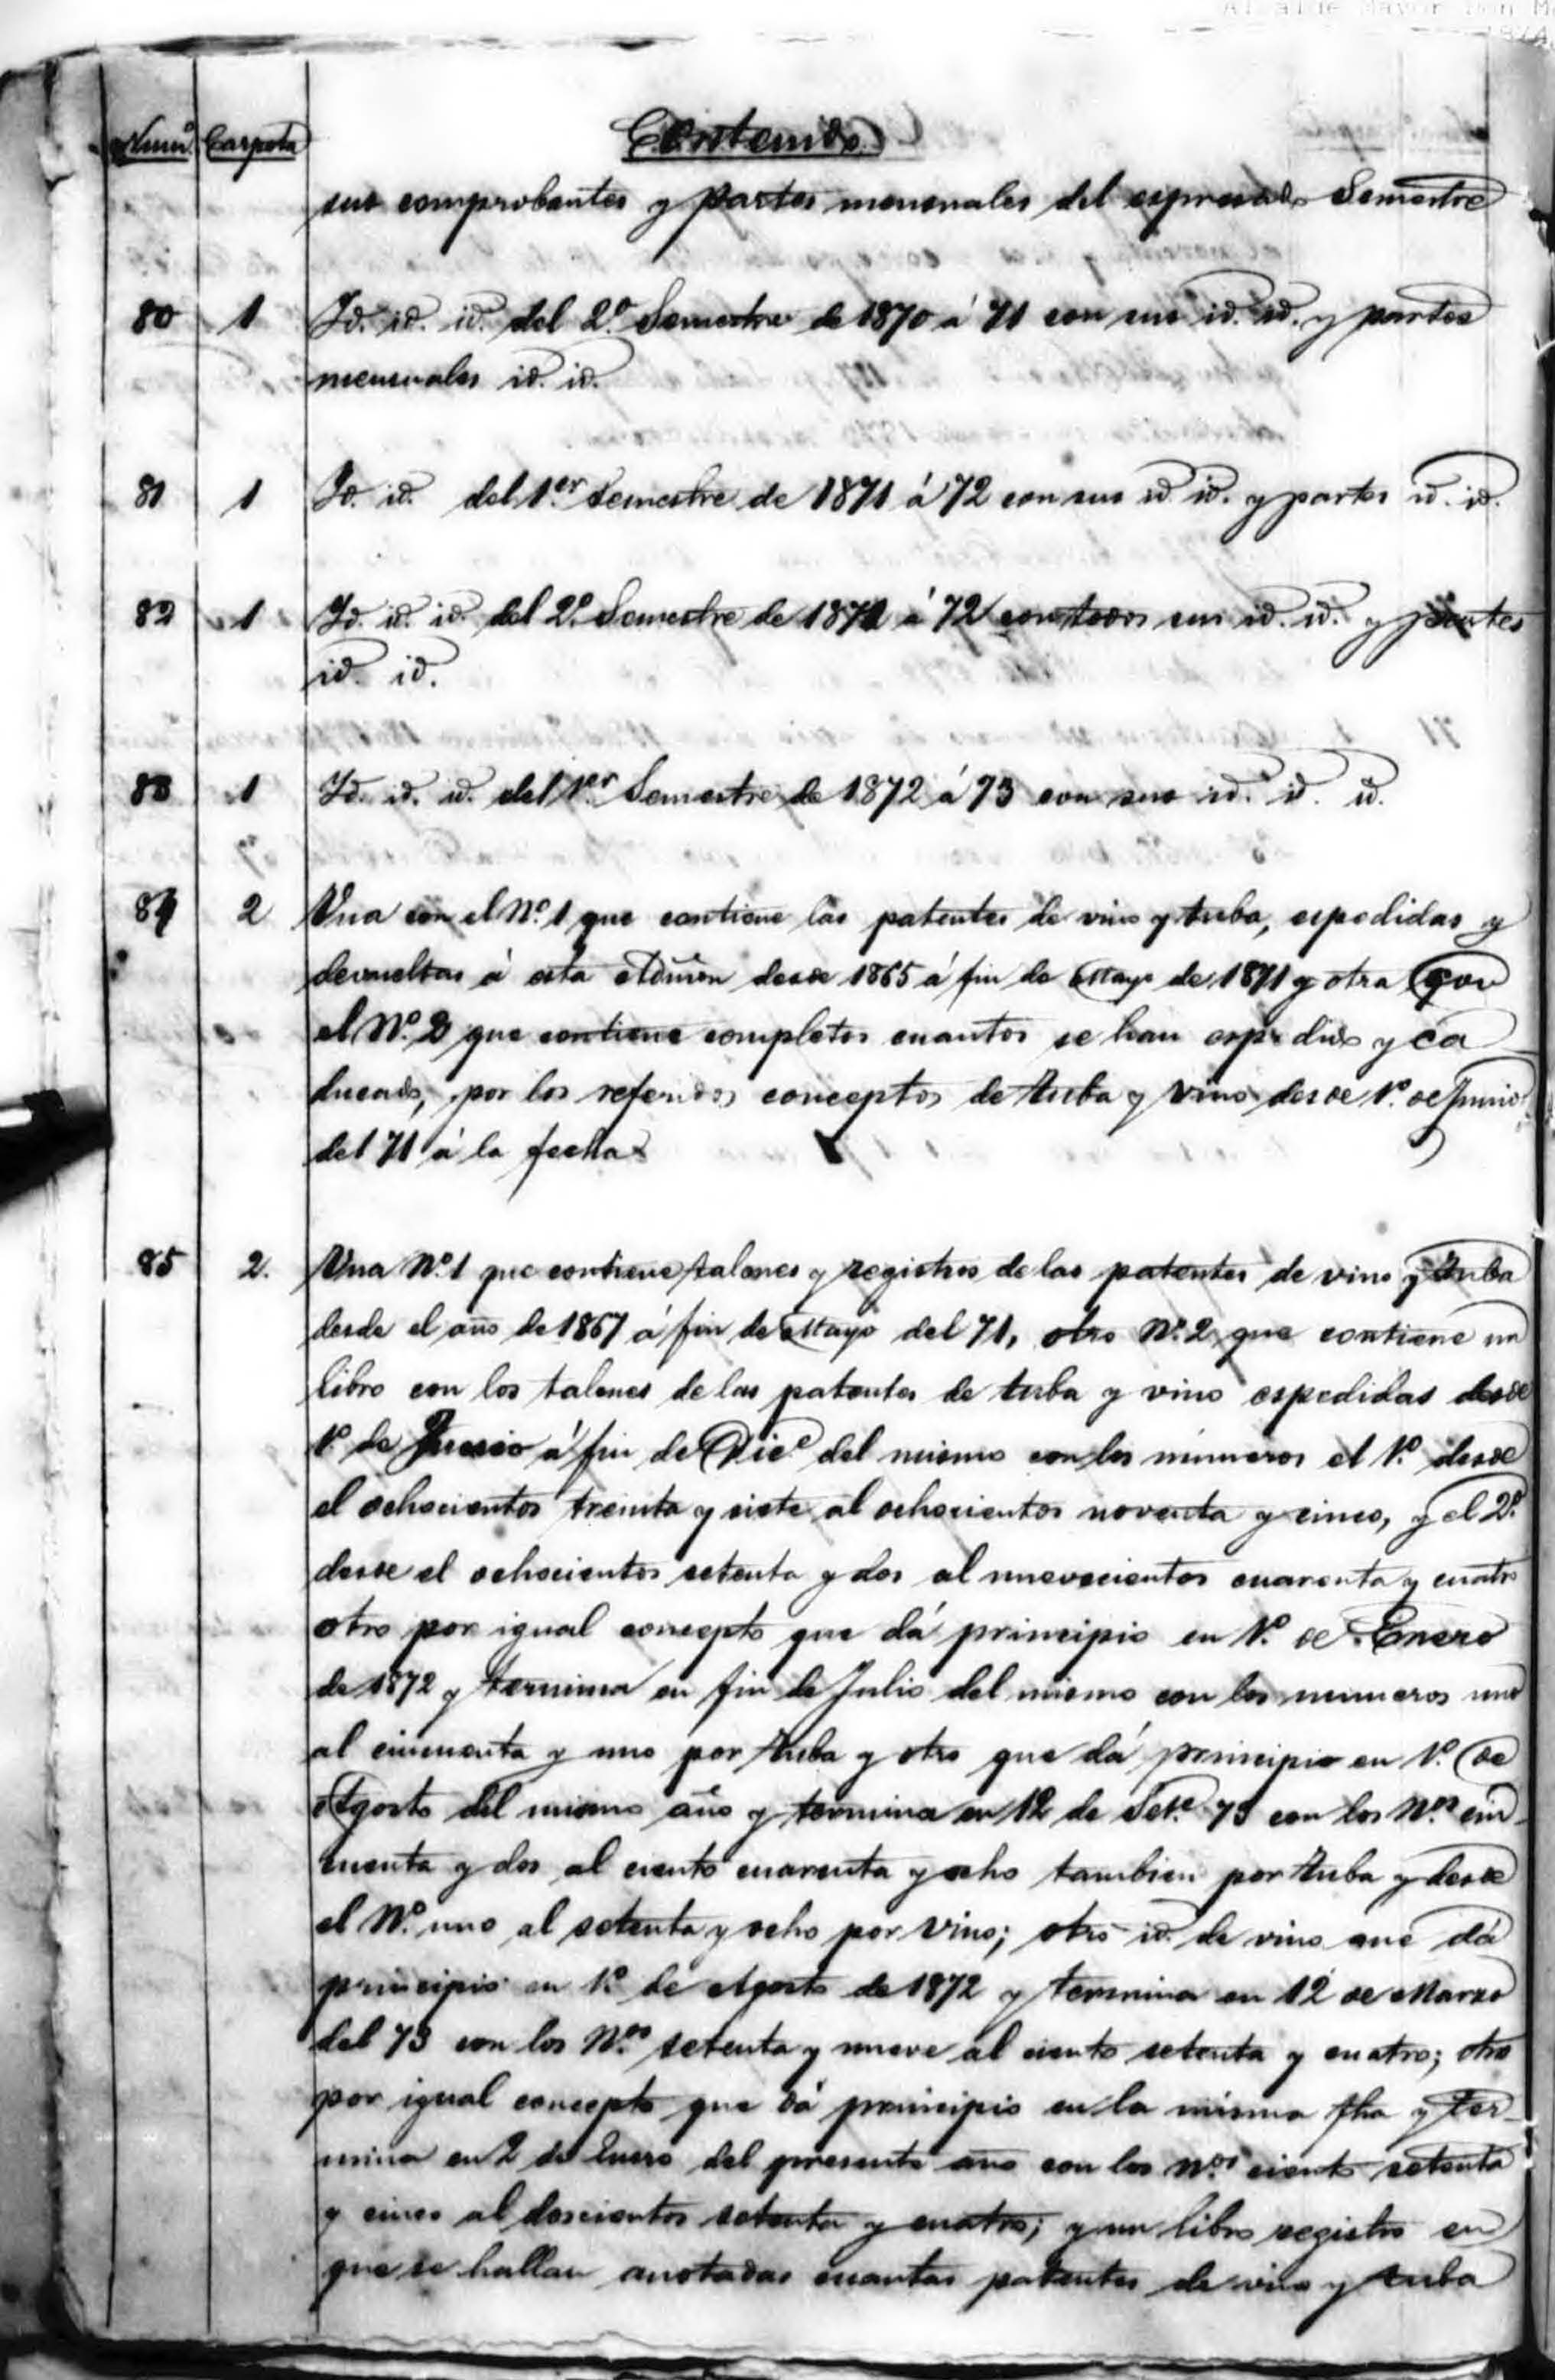 Alcalde Mayor Don M
1874
Numº Carpeta Contenido
sus comprobantes y partes mensuales del espresado Semestre
80 1 Id. id. id. del 2º Semestre de 1870 á 71 con sus id. id. y partes
mensuales id. id.
81 1 Id. id. del 1er Semestre de 1871 á 72 con sus id id. y partes id. id.
82 1 Id. id. id. del 2º Semestre de 1871 á 72 con todos sus id. id. y partes
id. id.
83 1 Id. id. id. del 1er Semestre de 1872 á 73 con sus id. id. id.
84 2 Una con el Nº 1 que contiene las patentes de vino y tuba, espedidas y
devueltas á esta Admon desde 1865 á fin de Mayo de 1871 y otra con
el Nº 2 que contiene completos cuantos se han espedido y ca
ducado, por los referidos conceptos de tuba y vino desde 1º de Junio
del 71 á la fecha
85 2. Una Nº 1 que contiene talones y registros de las patentes de vino y tuba
desde el año de 1867 á fin de Mayo del 71, otro Nº 2 que contiene un
libro con los talones de las patentes de tuba y vino espedidas desde
1º de Junio á fin de Dice del mismo con los números el 1º desde
el ochocientos treinta y siete al ochocientos noventa y cinco, y el 2º
desde el ochocientos setenta y dos al nuevecientos cuarenta y cuatro
otro por igual concepto que dá principio en 1º de Enero
de 1872 y termina en fin de Julio del mismo con los numeros uno
al cincuenta y uno por tuba y otro que dá principio en 1º de
Agosto del mismo año y termina en 12 de Sete 73 con los Nos cin-
cuenta y dos al ciento cuarenta y ocho tambien por tuba y desde
el Nº uno al setenta y ocho por vino; otro id. de vino que dá
principio en 1º de Agosto de 1872 y termina en 12 de Marzo
del 73 con los Nos setenta y nueve al ciento setenta y cuatro; otro
por igual concepto que dá principio en la misma fha y ter-
mina en 2 de Enero del presente año con los nos ciento setenta
y cinco al doscientos setenta y cuatro; y un libro registro en
que se hallan anotadas cuantas patentes de vino y tuba